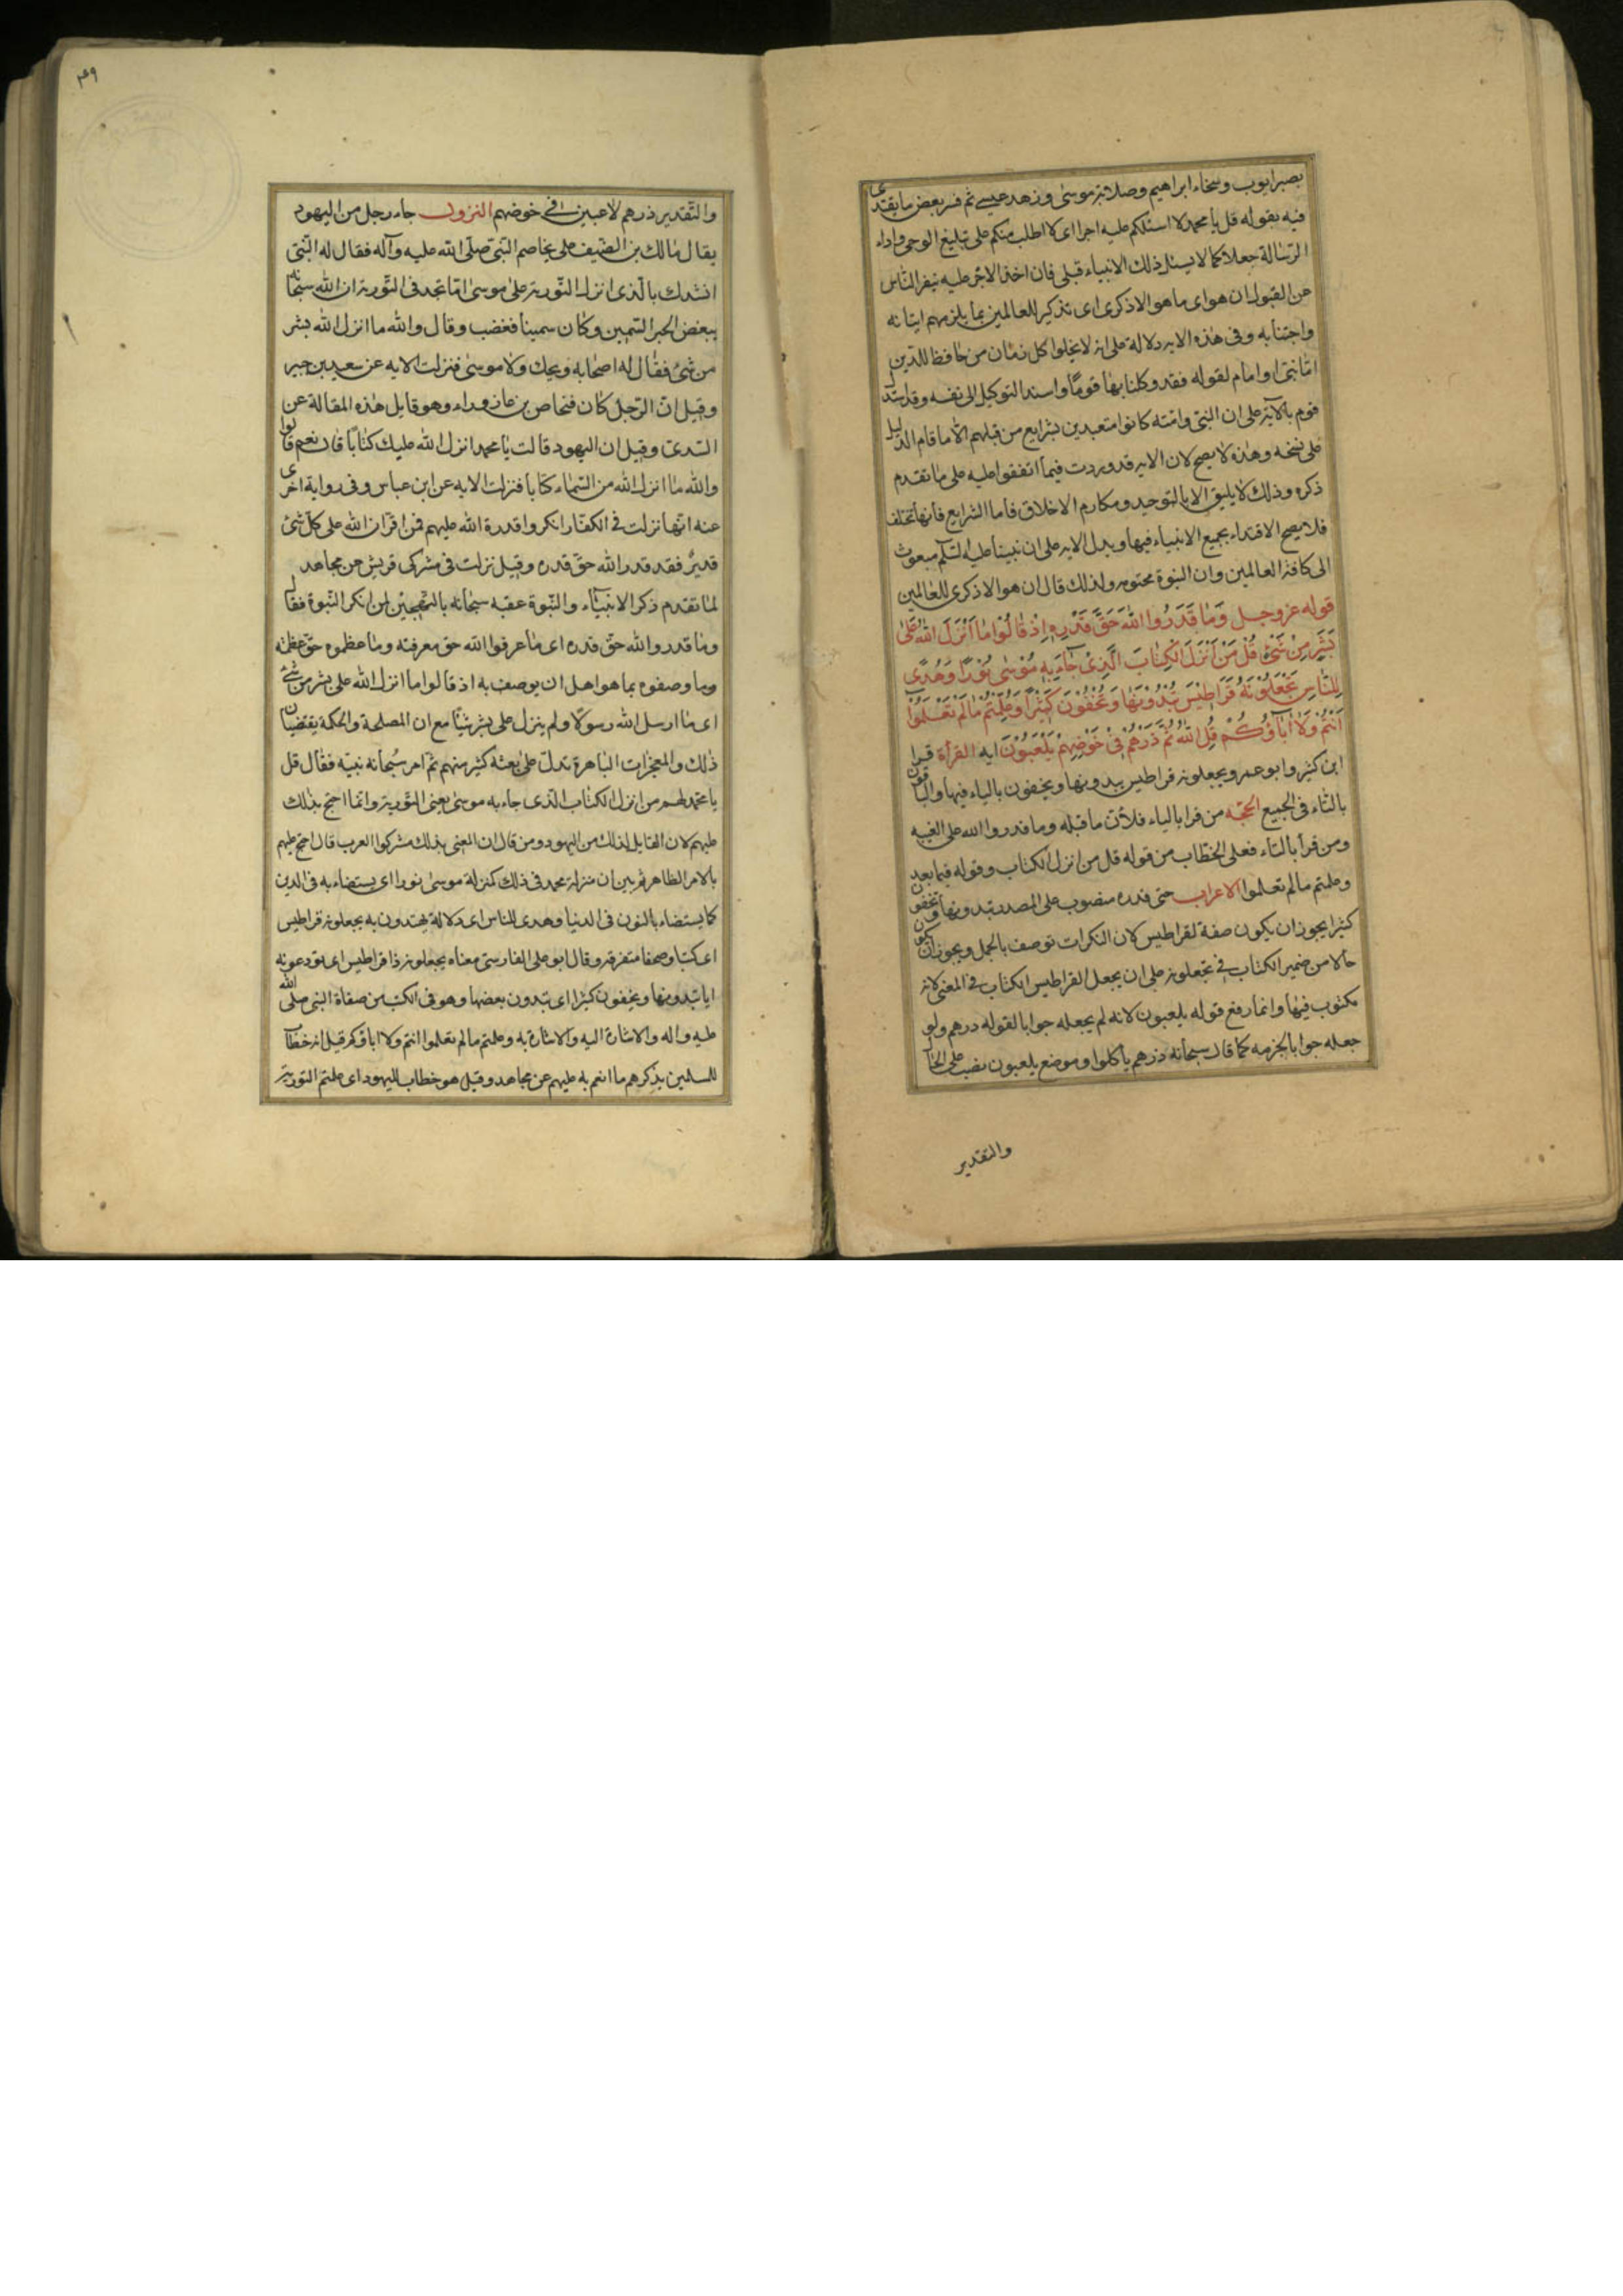 بصبر ايوب وسخاء ابراهيم وصلابة موسى وزهد عيسى ثم فسر بعض ما يقتدى
فيه بقوله قل يا محمد لا اسئلكم عليه اجرا اى لا اطلب منكم على تبليغ الوحى واداء
الرسالة جعلا كما لا يسئل ذلك الانبياء قبلى فان اخذ الاجر عليه ينفر الناس
عن القبول ان هو اى ما هو الا ذكرى اى تذكير للعالمين بما يلزمهم اتيانه
واجتنابه وفى هذه الايه دلالة على انه لا يخلوا كل زمان من حافظ للدين
اما نبى او امام لقوله فقد وكلنا بها قوما واسند التوكيل الى نفسه وقد استدل
قوم بالآية على ان النبى وامته كانوا متعبدين بشرايع من قبلهم الا ما قام الدليل
على نسخه وهذه لا يصح لان الايه قد وردت فيما اتفقوا عليه على ما تقدم
ذكره وذلك لا يليق الا بالتوحيد ومكارم الاخلاق فاما الشرايع فانها تختلف
فلا يصح الاقتداء بجميع الانبياء فيها ويدل الايه على ان نبينا عليه السلم مبعوث
الى كافة العالمين وان النبوة مختومه ولذلك قال ان هو الا ذكرى للعالمين
قوله عز وجل وَمَا قَدَرُوا اللّٰهَ حَقَّ قَدْرِهِ اِذْ قَالُوْا مَا اَنْزَلَ اللّٰهُ عَلٰى
بَشَرٍ مِنْ شَىْءٍ قُلْ مَنْ اَنْزَلَ الْكِتَابَ الَّذِىْ جَآءَ بِهِ مُوْسٰى نُوْرًا وَهُدًى
لِلنَّاسِ تَجْعَلُوْنَهُ قَرَاطِيْسَ تُبْدُوْنَهَا وَتُخْفُوْنَ كَثِيْرًا وَعُلِّمْتُمْ مَا لَمْ تَعْلَمُوْا
اَنْتُمْ وَلَا اٰبَآؤُكُمْ قُلِ اللّٰهُ ثُمَّ ذَرْهُمْ فِىْ خَوْضِهِمْ يَلْعَبُوْنَ ايه القرأة قرا
ابن كثير وابو عمرو يجعلونه قراطيس يبدونها ويخفون بالياء فيها والباقون
بالتاء فى الجميع الحجّه من قرا بالياء فلأن ما قبله وما قدروا الله على الغيبه
ومن قرأ بالتاء فعلى الخطاب من قوله قل من انزل الكتاب وقوله فيما بعد
وعلمتم ما لم تعلموا الاعراب حق قدره منصوب على المصدر تبدونها وتخفون
كثيرا يجوز ان يكون صفة لقراطيس لان النكرات توصف بالجمل ويجوز ان يكون
حالا من ضمير الكتاب فى تجعلونه على ان يجعل القراطيس الكتاب فى المعنى لانه
مكتوب فيها وانما رفع قوله يلعبون لانه لم يجعله جوابا لقوله ذرهم ولو
جعله جوابا لجزمه كما قال سبحانه ذرهم يأكلوا وموضع يلعبون نصب على الحال
والتقدير
٤٩
والتقدير ذرهم لاعبين فى خوضهم النزول جاء رجل من اليهود
يقال مالك بن الضيف على يخاصم النبى صلى الله عليه وآله فقال له النبى
انشدك بالذى انزل التورية على موسى اما تجد فى التورية ان الله سبحانه
يبغض الحبر السمين وكان سمينا فغضب وقال والله ما انزل الله بشر
من شىء فقال له اصحابه ويحك ولا موسى فنزلت الايه عن سعيد بن جبير
وقيل ان الرجل كان فنحاص بن عازوراء وهو قايل هذه المقالة عن
السدى وقيل ان اليهود قالت يا محمد انزل الله عليك كتابا قال نعم قالوا
والله ما انزل الله من السماء كتابا فنزلت الايه عن ابن عباس وفى رواية اخرى
عنه انها نزلت فى الكفار انكروا قدرة الله عليهم فمن اقر ان الله على كل شئ
قدير فقد قدر الله حق قدره وقيل نزلت فى مشركى قريش عن مجاهد
لما تقدم ذكر الانبياء والنبوة عقبه سبحانه بالتهجين لمن انكر النبوة فقال
وما قدروا الله حق قدره اى ما عرفوا الله حق معرفته وما عظموه حق عظمته
وما وصفوه بما هو اهل ان يوصف به اذ قالوا ما انزل الله على بشر من شئ
اى ما ارسل الله رسولا ولم ينزل على بشر شيئا مع ان المصلحة والحكمة يقتضيان
ذلك والمعجزات الباهرة تدل على بعثة كثير منهم ثم امر سبحانه نبيه فقال قل
يا محمد لهم من انزل الكتاب الذى جاء به موسى يعنى التورية وانما احتج بذلك
عليهم لان القايل لذلك من اليهود ومن قال ان المعنى بذلك مشركوا العرب قال احتج عليهم
بالامر الظاهر ثم بين ان منزلة محمد فى ذلك كمنزلة موسى نورا اى يستضاء به فى الدين
كما يستضاء بالنون فى الدنيا وهدى للناس اى دلالة يهتدون به يجعلونه قراطيس
اى كتبا وصحفا متفرقه وقال ابو على الفارسى معناه يجعلونه ذا قراطيس اى يودعونه
اياها تبدونها ويخفون كثيرا اى تبدون بعضها وهو فى الكتب من صفاة النبى صلى الله
عليه واله والاشارة اليه والاشارة به وعلمتم ما لم تعلموا انتم ولا اباؤكم قيل انه خطاب
للمسلمين يذكرهم ما انعم به عليهم عن مجاهد وقيل هو خطاب لليهود اى علمتم التورية